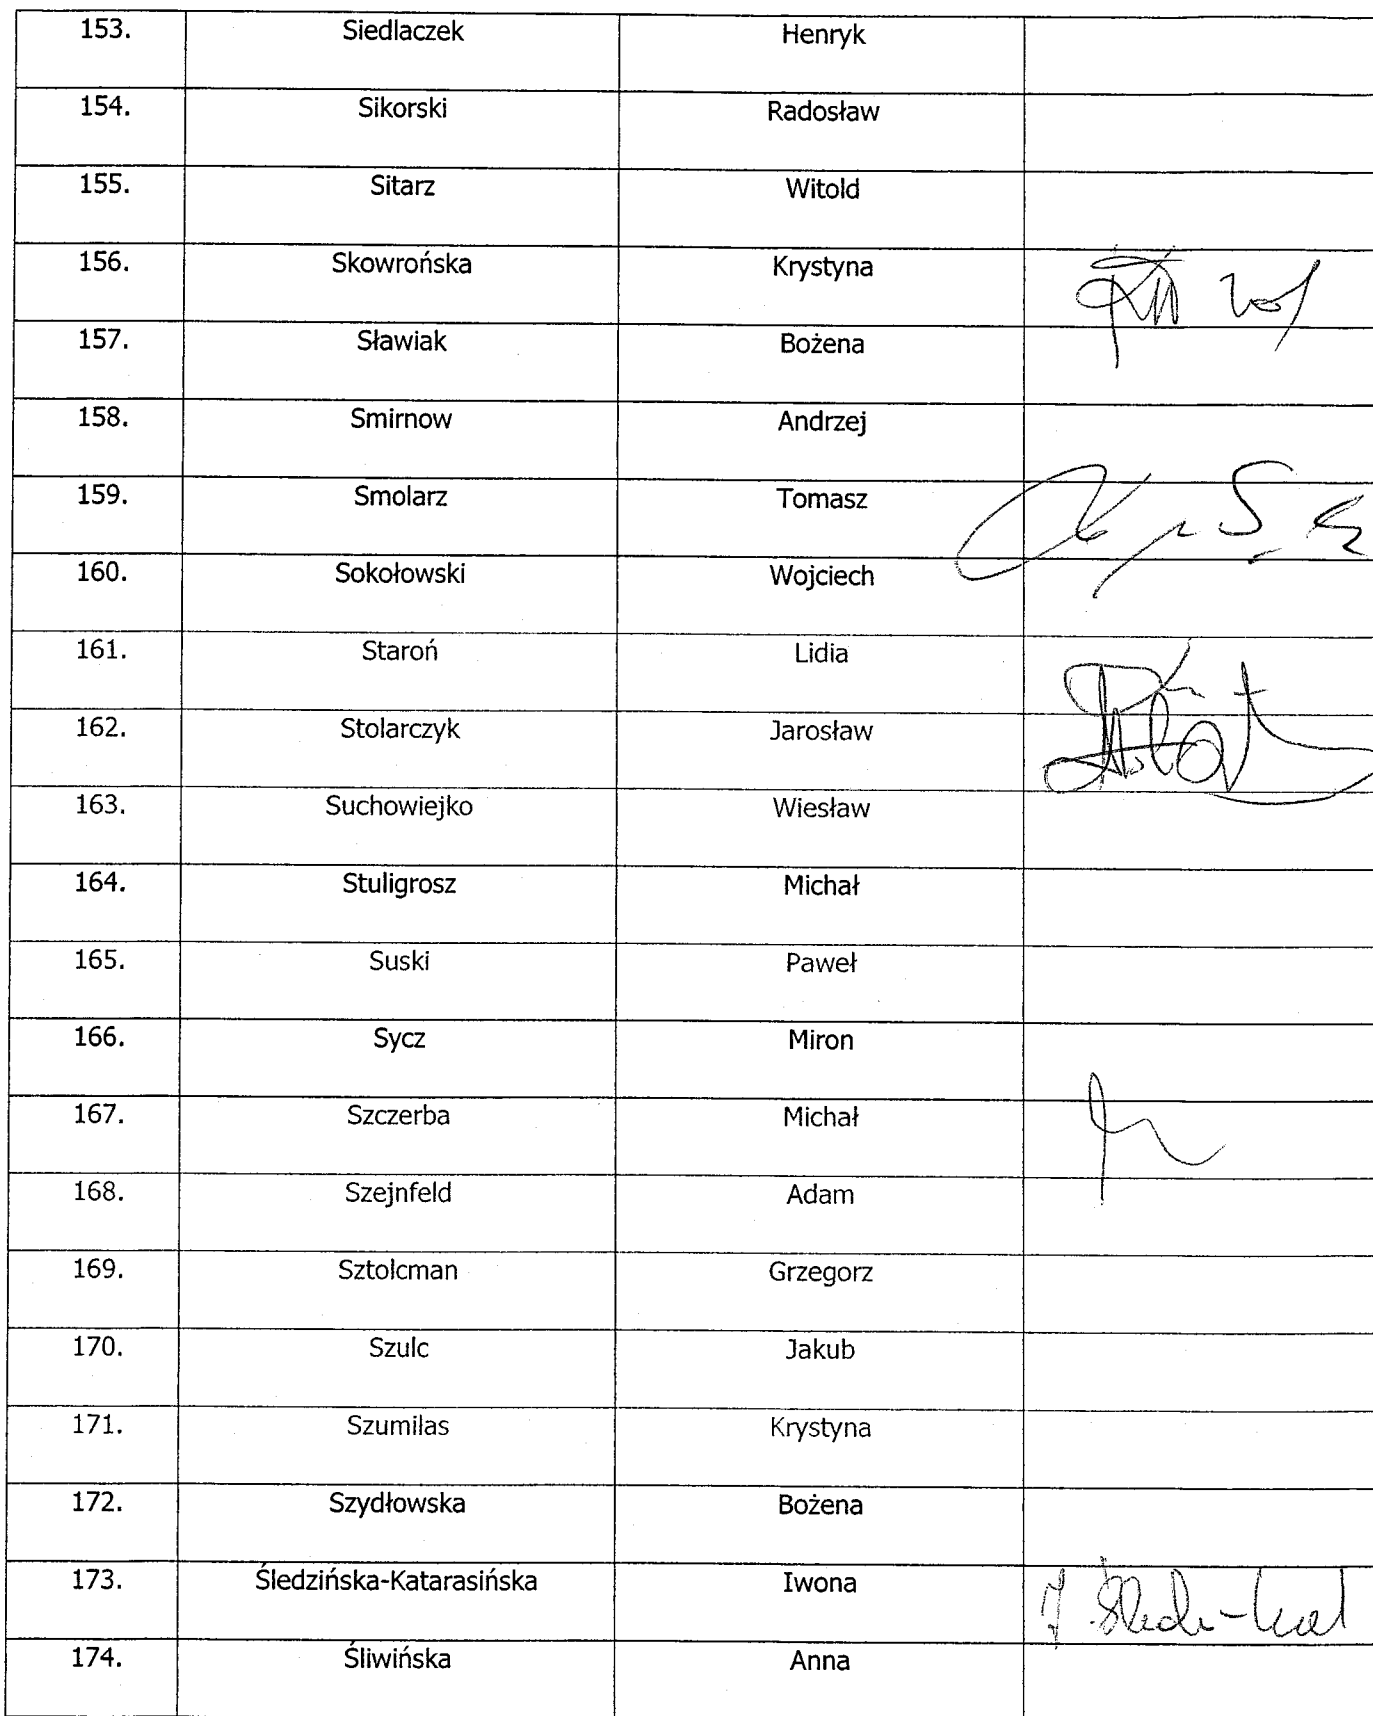 153. Siedlaczek Henryk
154. Sikorski Radosław
155. Sitarz Witold
156. Skowrońska Krystyna
157. Sławiak Bożena
158. Smirnow Andrzej
159. Smolarz Tomasz
160. Sokołowski Wojciech
161. Staroń Lidia
162. Stolarczyk Jarosław
163. Suchowiejko Wiesław
164. Stuligrosz Michał
165. Suski Paweł
166. Sycz Miron
167. Szczerba Michał
168. Szejnfeld Adam
169. Sztolcman Grzegorz
170. Szulc Jakub
171. Szumilas Krystyna
172. Szydłowska Bożena
173. Śledzińska-Katarasińska Iwona
174. Śliwińska Anna